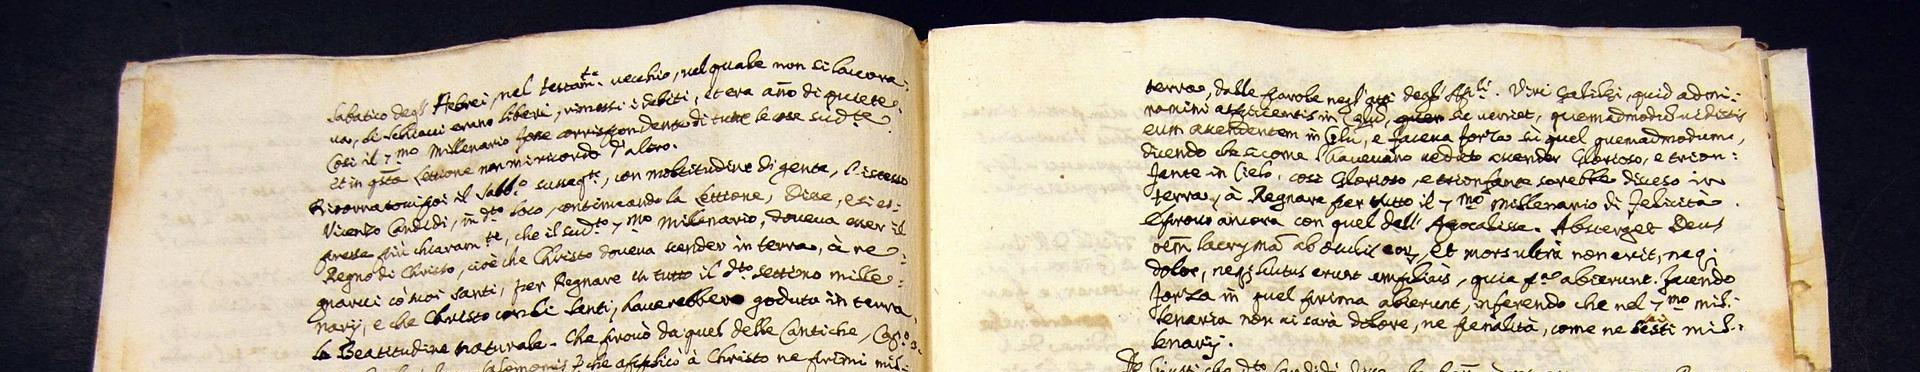 Sabatico degl' Hebrei, nel testam.te vecchio, nel quale non si lavora:
va, li schiavi erano liberi, rimessi i debiti, et era año di quiete.
Cosi il 7.mo Millenario fosse corrispondente di tutte le cose sud.te
et in q.sta lettione non mi ricordo d'altro.
Ritornatovi poi il Sabb.o susseg.te, con moltitudine di gente, l'istesso
Vicenzo Candidi, in d.to loco, continuando la lettione, Disse, e si es:
presse più chiaram.te, che il sud.to 7.mo Millenario, doveva esser il
Regno di Christo, cioè che Christo doveva scender in terra, à re:
gnarvi cò suoi Santi, per Regnare in tutto il d.to settimo mille:
nary, e che Christo con li Santi, haverebbero goduto in terra,
la Beatitudine naturale. Che provò da quel delle Cantiche, Cap.o 3.
che applicò à Christo ne primi mil:
terra, dalle parole negl' atti degl' Ap.li. Viri Galilei, quid admi:
ramini aspicientis in Celu, sic veniet, quemadmodu vidistis
eum ascendentem in Celu, e faceva forza sù quel quemadmodum,
dicendo che sicome l'havevano veduto ascender Glorioso, e trion:
fante in Cielo, così Glorioso, e trionfante sarebbe disceso in
terra, à Regnare per tutto il 7.mo Millenario di felicità.
E provò ancora con quel dell' Apocalisse. Absterget Deus
oem lacrymã ab oculis eor, et mors ultrà non erit, neq;
dolor, neq; luctus erunt amplius, quia p.a abierunt. facendo
forza in quel prima abierunt, inferendo che nel 7.mo mil:
lenario non vi sarà dolore, ne penalità, come ne sesti mil:
lenarij.
che d.to Candidi